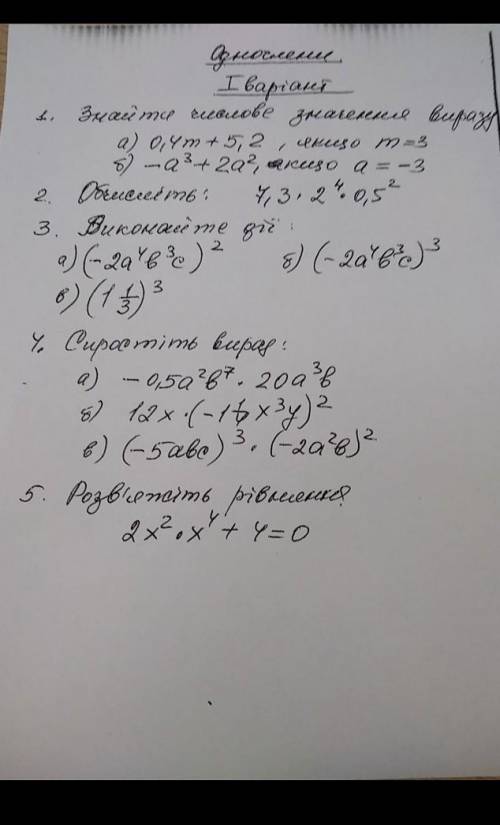 Одночлени
I варіант
1. Знайти числове значення виразу
а) 0,4m + 5,2, якщо m = 3
б) -a³ + 2a², якщо a = -3
2. Обчисліть: 7,3 · 2⁴ · 0,5²
3. Виконайте дії:
а) (-2a⁴b³c)² б) (-2a⁴b³c)³
в) (1 1/3)³
4. Спростіть вираз:
а) -0,5a²b⁷ · 20a³b
б) 12x · (-1 1/6 x³y)²
в) (-5abc)³ · (-2a²b)²
5. Розв'яжіть рівняння
2x² · x⁴ + 4 = 0